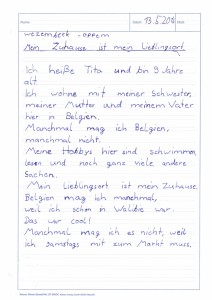 Name:
Datum: 13.5.20
Wezembeek-Oppem
Mein Zuhause ist mein Lieblingsort
Ich heiße Tita und bin 9 Jahre
alt.
Ich wohne mit meiner Schwester,
meiner Mutter und meinem Vater
hier in Belgien.
Manchmal mag ich Belgien,
manchmal nicht.
Meine Hobbys hier sind schwimmen,
lesen und noch ganz viele andere
Sachen.
Mein Lieblingsort ist mein Zuhause.
Belgien mag ich manchmal,
weil ich schon in Walibie war.
Das war cool!
Manchmal mag ich es nicht, weil
ich samstags mit zum Markt muss.